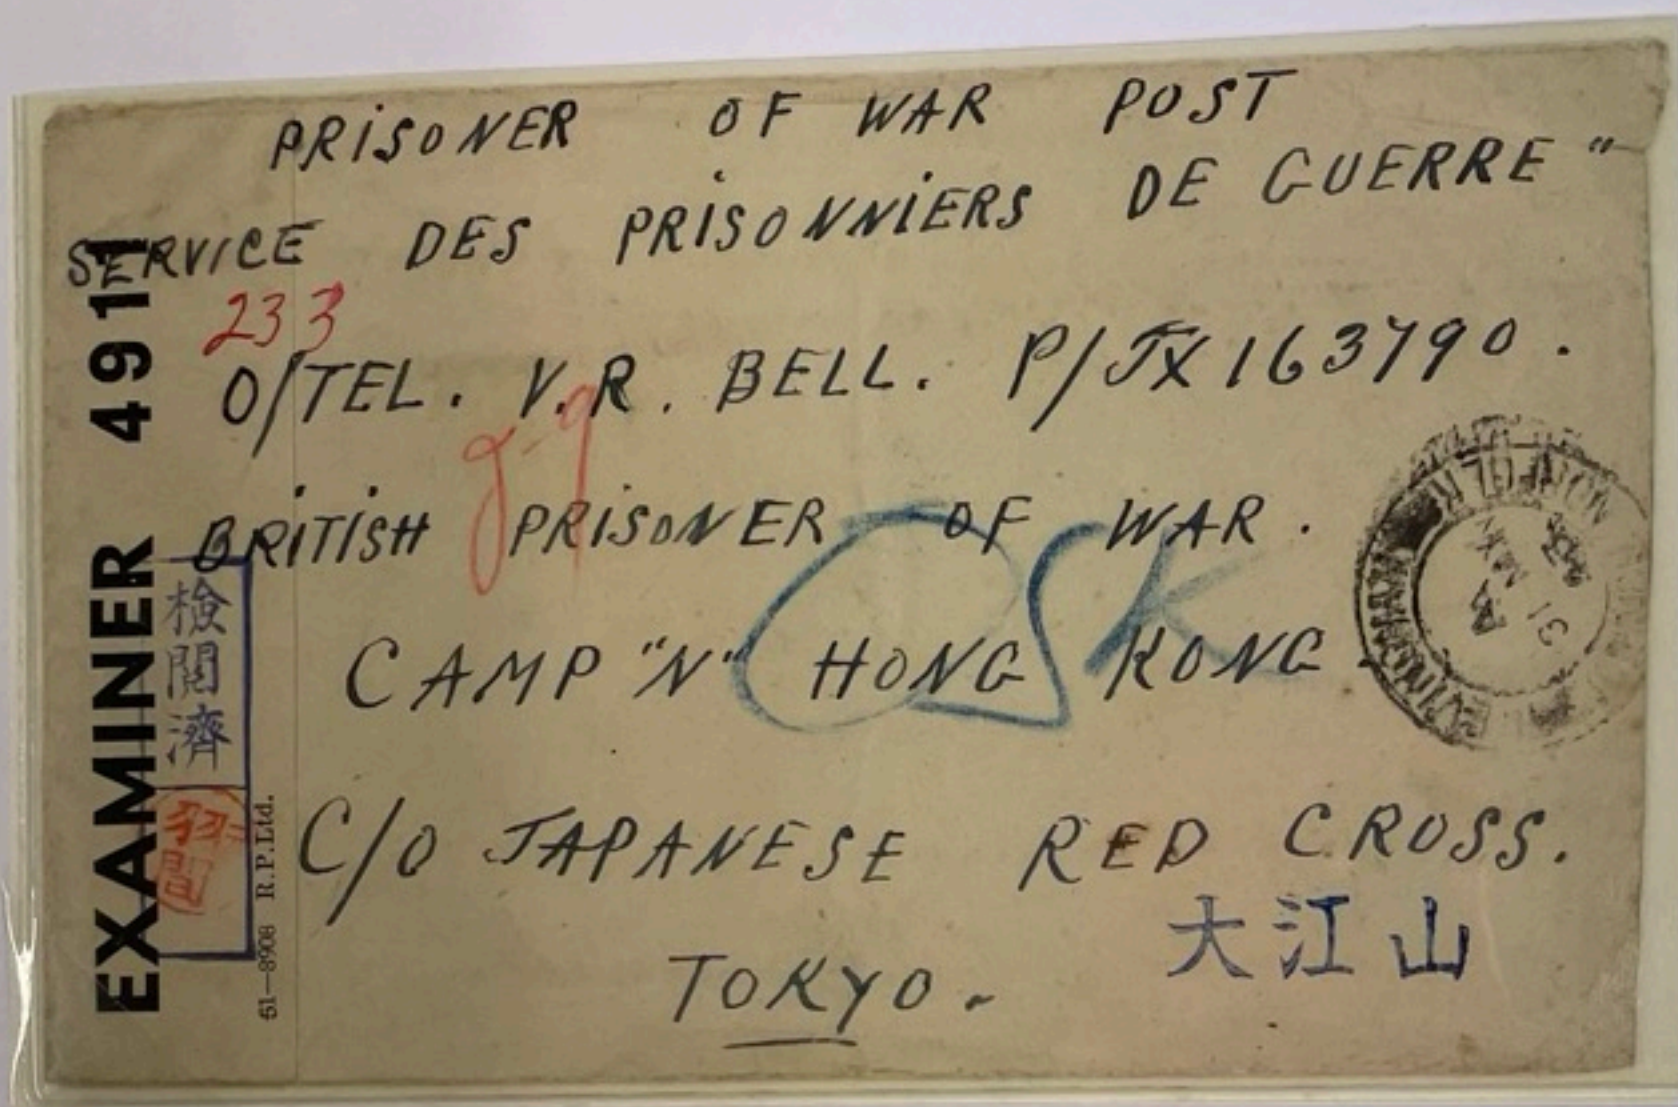 PRISONER OF WAR POST
SERVICE DES PRISONNIERS DE GUERRE"
233
O/TEL. V.R. BELL. P/JX 163790.
BRITISH PRISONER OF WAR.
CAMP "N" HONG KONG.
C/O JAPANESE RED CROSS.
TOKYO.
大江山
OSK
EXAMINER 4911
検閲済
51—8908 R.P.Ltd.
31